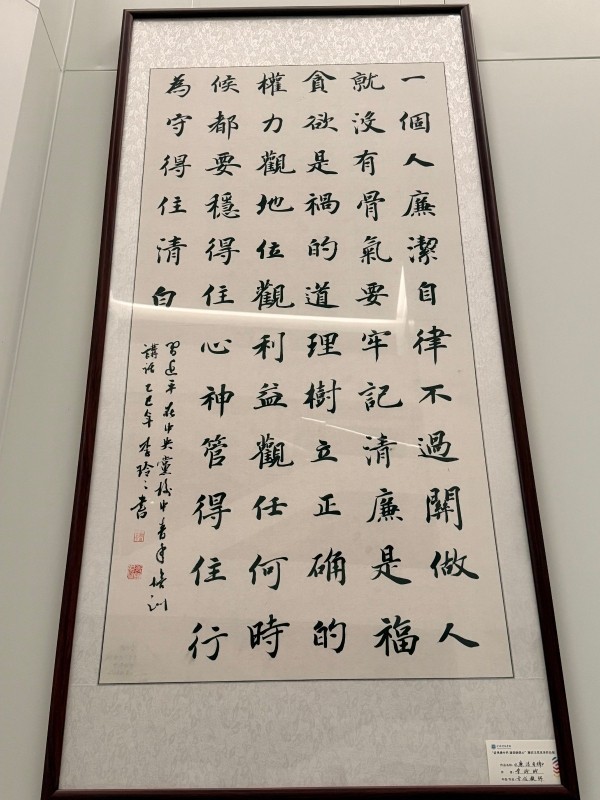 一個人廉潔自律不過關做人
就沒有骨氣要牢記清廉是福
貪欲是禍的道理樹立正确的
權力觀地位觀利益觀任何時
候都要穩得住心神管得住行
為守得住清白
習近平在中央黨校中青年培訓
講話乙巳年李玲玲書